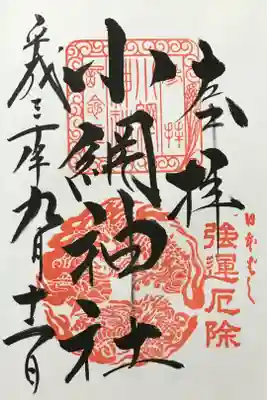 奉拝
日本ばし
強運厄除
小網神社
平成三十年九月十一日